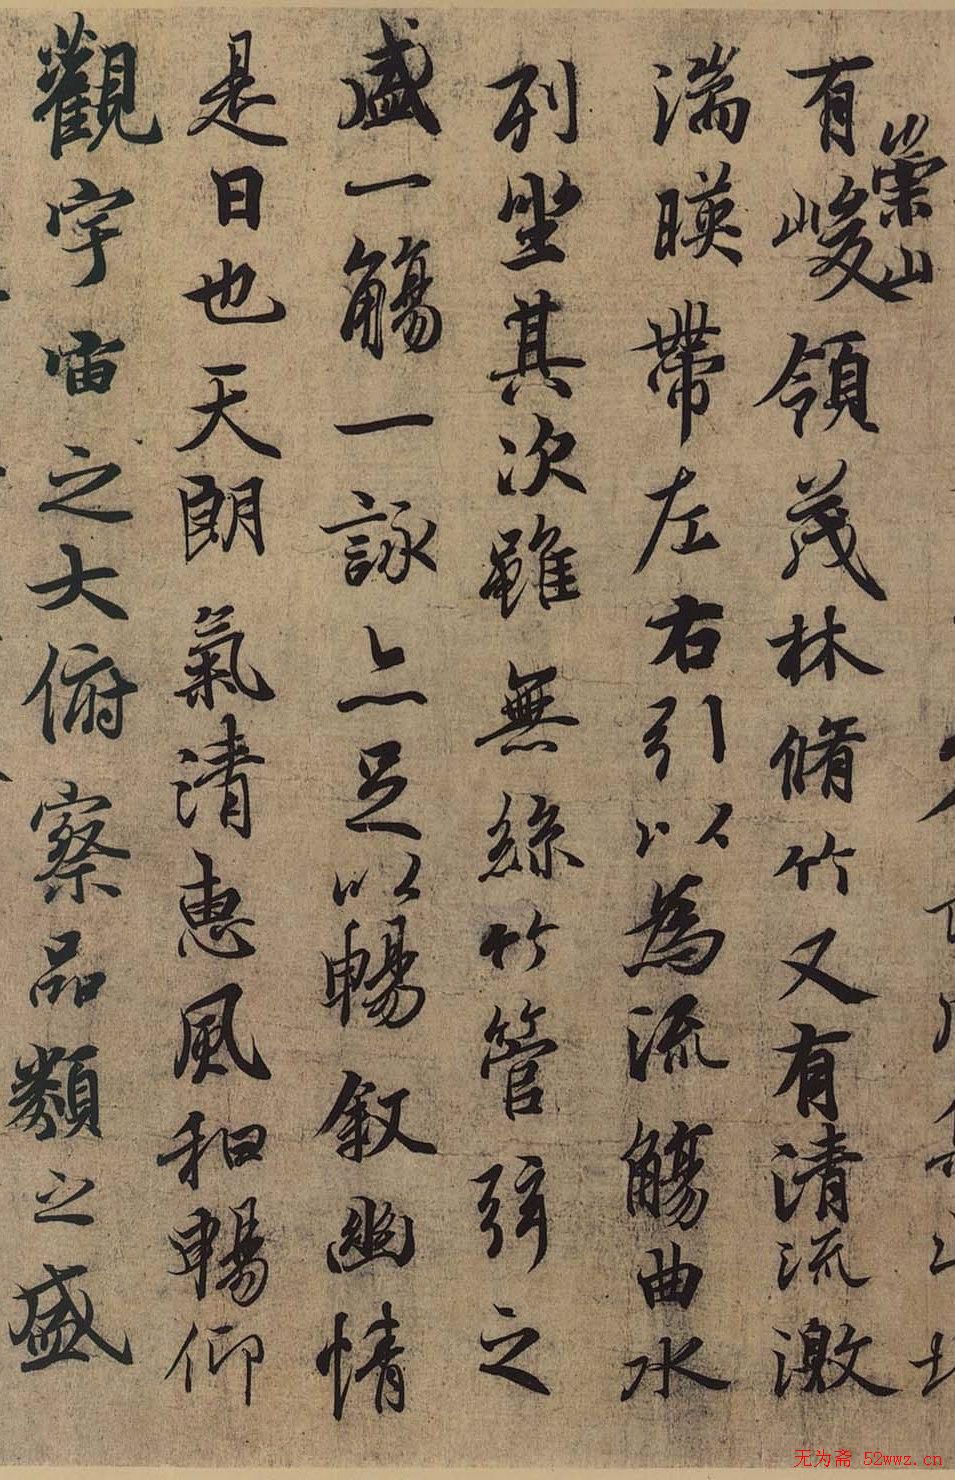 有崇山峻領茂林脩竹又有清流激
湍暎帶左右引以為流觴曲水
列坐其次雖無絲竹管弦之
盛一觴一詠亦足以暢敘幽情
是日也天朗氣清惠風和暢仰
觀宇宙之大俯察品類之盛
无为斋 52wwz.cn